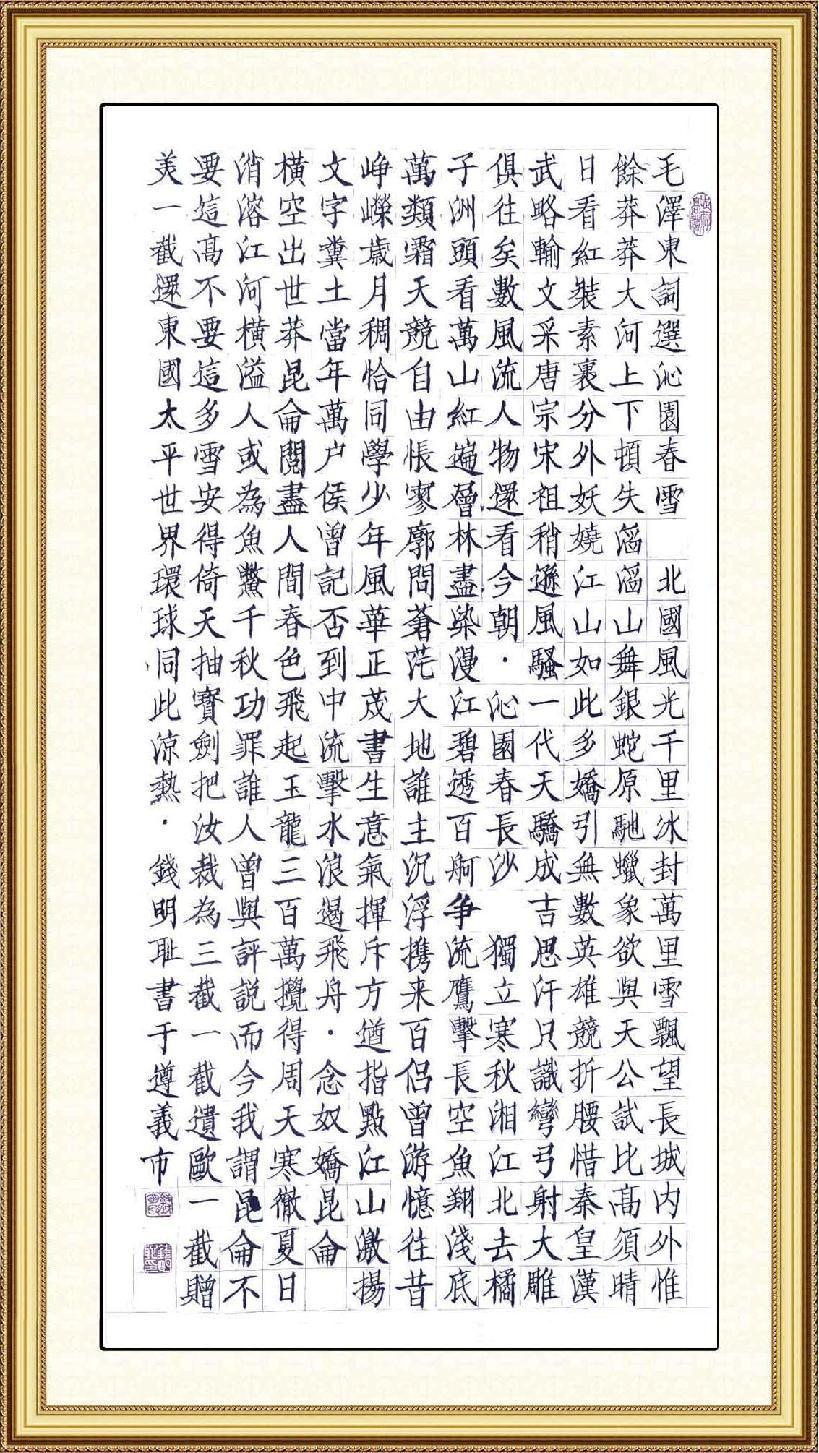 毛澤東詞選沁園春雪 北國風光千里冰封萬里雪飄望長城内外惟
餘莽莽大河上下頓失滔滔山舞銀蛇原馳蠟象欲與天公試比高須晴
日看紅裝素裹分外妖嬈江山如此多嬌引無數英雄競折腰惜秦皇漢
武略輸文采唐宗宋祖稍遜風騷一代天驕成吉思汗只識彎弓射大雕
俱往矣數風流人物還看今朝·沁園春長沙 獨立寒秋湘江北去橘
子洲頭看萬山紅遍層林盡染漫江碧透百舸争流鷹擊長空魚翔淺底
萬類霜天競自由悵寥廓問蒼茫大地誰主沉浮携来百侣曾游憶往昔
崢嶸歲月稠恰同學少年風華正茂書生意氣揮斥方遒指點江山激揚
文字糞土當年萬户侯曾記否到中流擊水浪遏飛舟·念奴嬌昆侖
橫空出世莽昆侖閱盡人間春色飛起玉龍三百萬攪得周天寒徹夏日
消溶江河橫溢人或為魚鱉千秋功罪誰人曾與評説而今我謂昆侖不
要這高不要這多雪安得倚天抽寶劍把汝裁為三截一截遺歐一截贈
美一截還東國太平世界環球同此涼熱·錢明耻書于遵義市